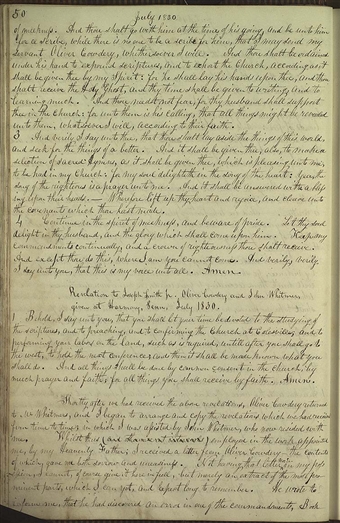 50
July 1830.
of meekness. And thou shalt go with him at the time of his going, and be unto him
for a scribe, while there is no one to be a scribe for him, that I may send my
servant Oliver Cowdery, whithersoever I will. And thou shalt be ordained
under his hand to expound scriptures, and to exhort the church, according as it
shall be given thee by my Spirit: for he shall lay his hands upon thee, and thou
shalt receive the Holy Ghost, and thy time shall be given to writing, and to
learning much. And thou needst not fear, for thy husband shall support
thee in the Church: for unto them is his calling, that all things might be revealed
unto them, whatsoever I will, according to their faith.
And verily I say unto thee, that thou shalt lay aside the things of this world,
and seek for the things of a better. And it shall be given thee, also, to make a
selection of sacred hymns, as it shall be given thee, which is pleasing unto me,
to be had in my Church: for my soul delighteth in the song of the heart: Yea, the
song of the righteous is a prayer unto me. And it shall be answered with a bless
ing upon their heads. — Wherefore lift up thy heart and rejoice, and cleave unto
the covenants which thou hast made.
Continue in the spirit of meekness, and beware of pride. Let thy soul
delight in thy husband, and the glory which shall come upon him. Keep my
commandments continually, and a crown of righteousness thou shalt receive.
And except thou do this, where I am you cannot come. And verily, verily
I say unto you, that this is my voice unto all. Amen.
Revelation to Joseph Smith Jr. Oliver Cowdery and John Whitmer,
given at Harmony, Penn. July 1830.
Behold, I say unto you, that you shall let your time be devoted to the studying of
the scriptures, and to preaching, and to confirming the Church at Colesville, and to
performing your labors on the land, such as is required, until after you shall go to
the west, to hold the next conference; and then it shall be made known what you
shall do. And all things shall be done by common consent in the church, by
much prayer and faith; for all things you shall receive by faith. Amen.
Shortly after we had received the above revelations, Oliver Cowdery returned
to Mr Whitmers, and I began to arrange and copy the revelations which we had received
from time to time; in which I was assisted by John Whitmer, who now resided with
me.
Whilst thus employed in the work appointed
me, by my Heavenly Father, I received a letter from Oliver Cowdery — the contents
of which, gave me both sorrow and uneasiness.
not, of course give it here in full, but merely an extract of the most pro
minent parts, which I can yet, and expect long to remember. He wrote to
inform me, that he had discovered an error in one of the commandments, Book